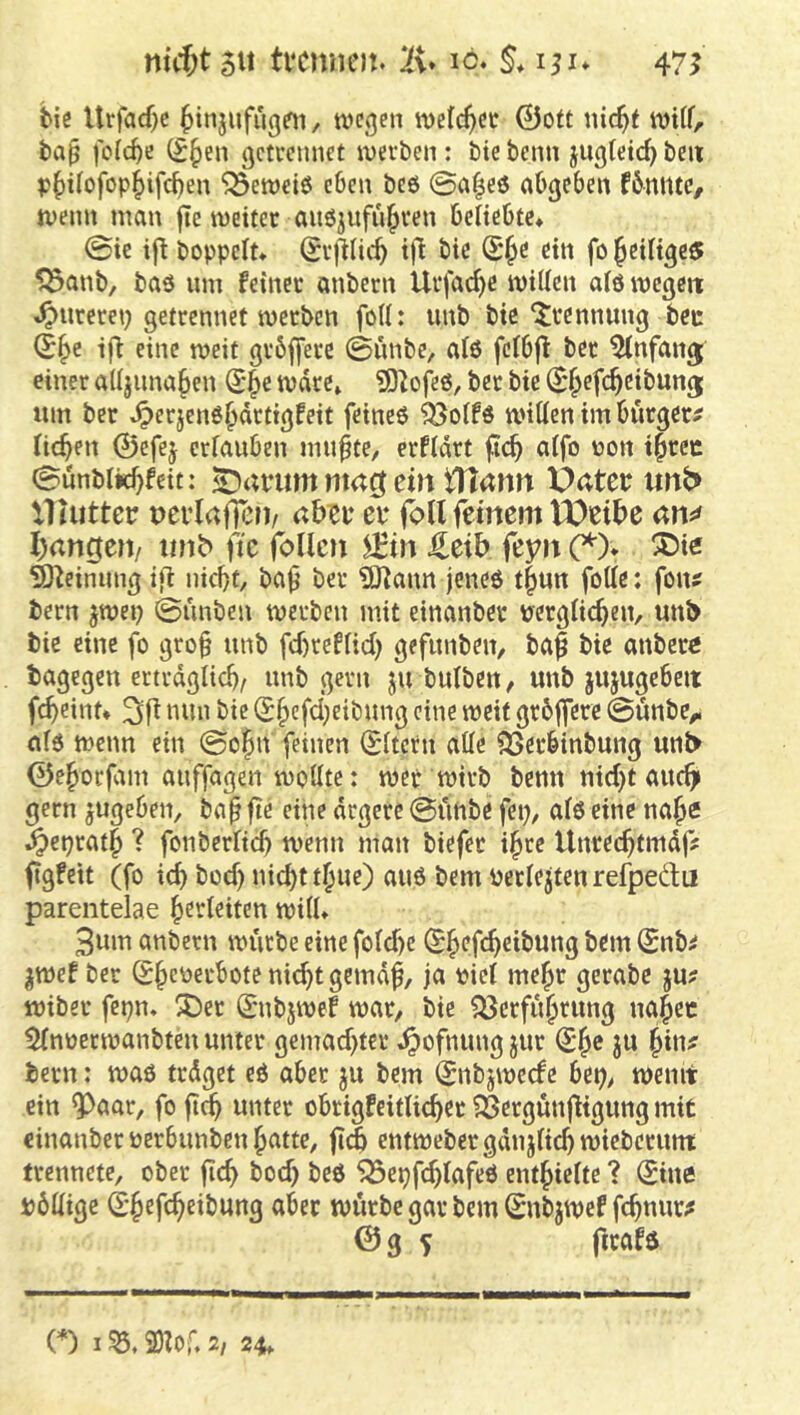 nicht zu trennen. A. 10. §. 131. 473
die Ursache hinzufügen, wegen welcher Gott nicht will,
daß solche Ehen getrennet werden: die denn zugleich den
philosophischen Beweis eben des Satzes abgeben könnte,
wenn man sie weiter auszuführen beliebte.
Sie ist doppelt. Erstlich ist die Ehe ein so heiliges
Band, das um keiner andern Ursache willen als wegen
Hurerey getrennet werden soll: und die Trennung der
Ehe ist eine weit grössere Sünde, als selbst der Anfang
einer allzunahen Ehe wäre. Moses, der die Ehescheidung
um der Herzenshärtigkeit seines Volks willen im bürger-
lichen Gesez erlauben mußte, erklärt sich also von ihrer
Sündlichkeit: Darum mag ein Mann Vater und
Mutter verlassen, aber er soll seinem Weibe an-
hangen, und sie sollen Ein Leib seyn (*). Die
Meinung ist nicht, daß der Mann jenes thun solle: son-
dern zwey Sünden werden mit einander verglichen, und
die eine so groß und schreklich gefunden, daß die andere
dagegen erträglich, und gern zu dulden, und zuzugeben
scheint. Ist nun die Ehescheidung eine weit grössere Sünde,
als wenn ein Sohn seinen Eltern alle Verbindung und
Gehorsam aufsagen wollte: wer wird denn nicht auch
gern zugeben, daß sie eine ärgere Sünde sey, als eine nahe
Heyrath? sonderlich wenn man dieser ihre Unrechtmäs-
sigkeit (so ich doch nicht thue) aus dem verlezten respectu
parentelae herleiten will.
Zum andern würde eine solche Ehescheidung dem End-
zwek der Eheverbote nicht gemäß, ja viel mehr gerade zu-
wider seyn. Der Endzwek war, die Verführung naher
Anverwandten unter gemachter Hofnung zur Ehe zu hin-
dern: was träget es aber zu dem Endzwecke bey, wenn
ein Paar, so sich unter obrigkeitlicher Vergünstigung mit
einander verbunden hatte, sich entweder gänzlich wiederum
trennete, oder sich doch des Beyschlafes enthielte? Eine
völlige Ehescheidung aber würde gar dem Endzwek schnur-
Gg 5 straks
(*) 1 B. Mos. 2, 24.